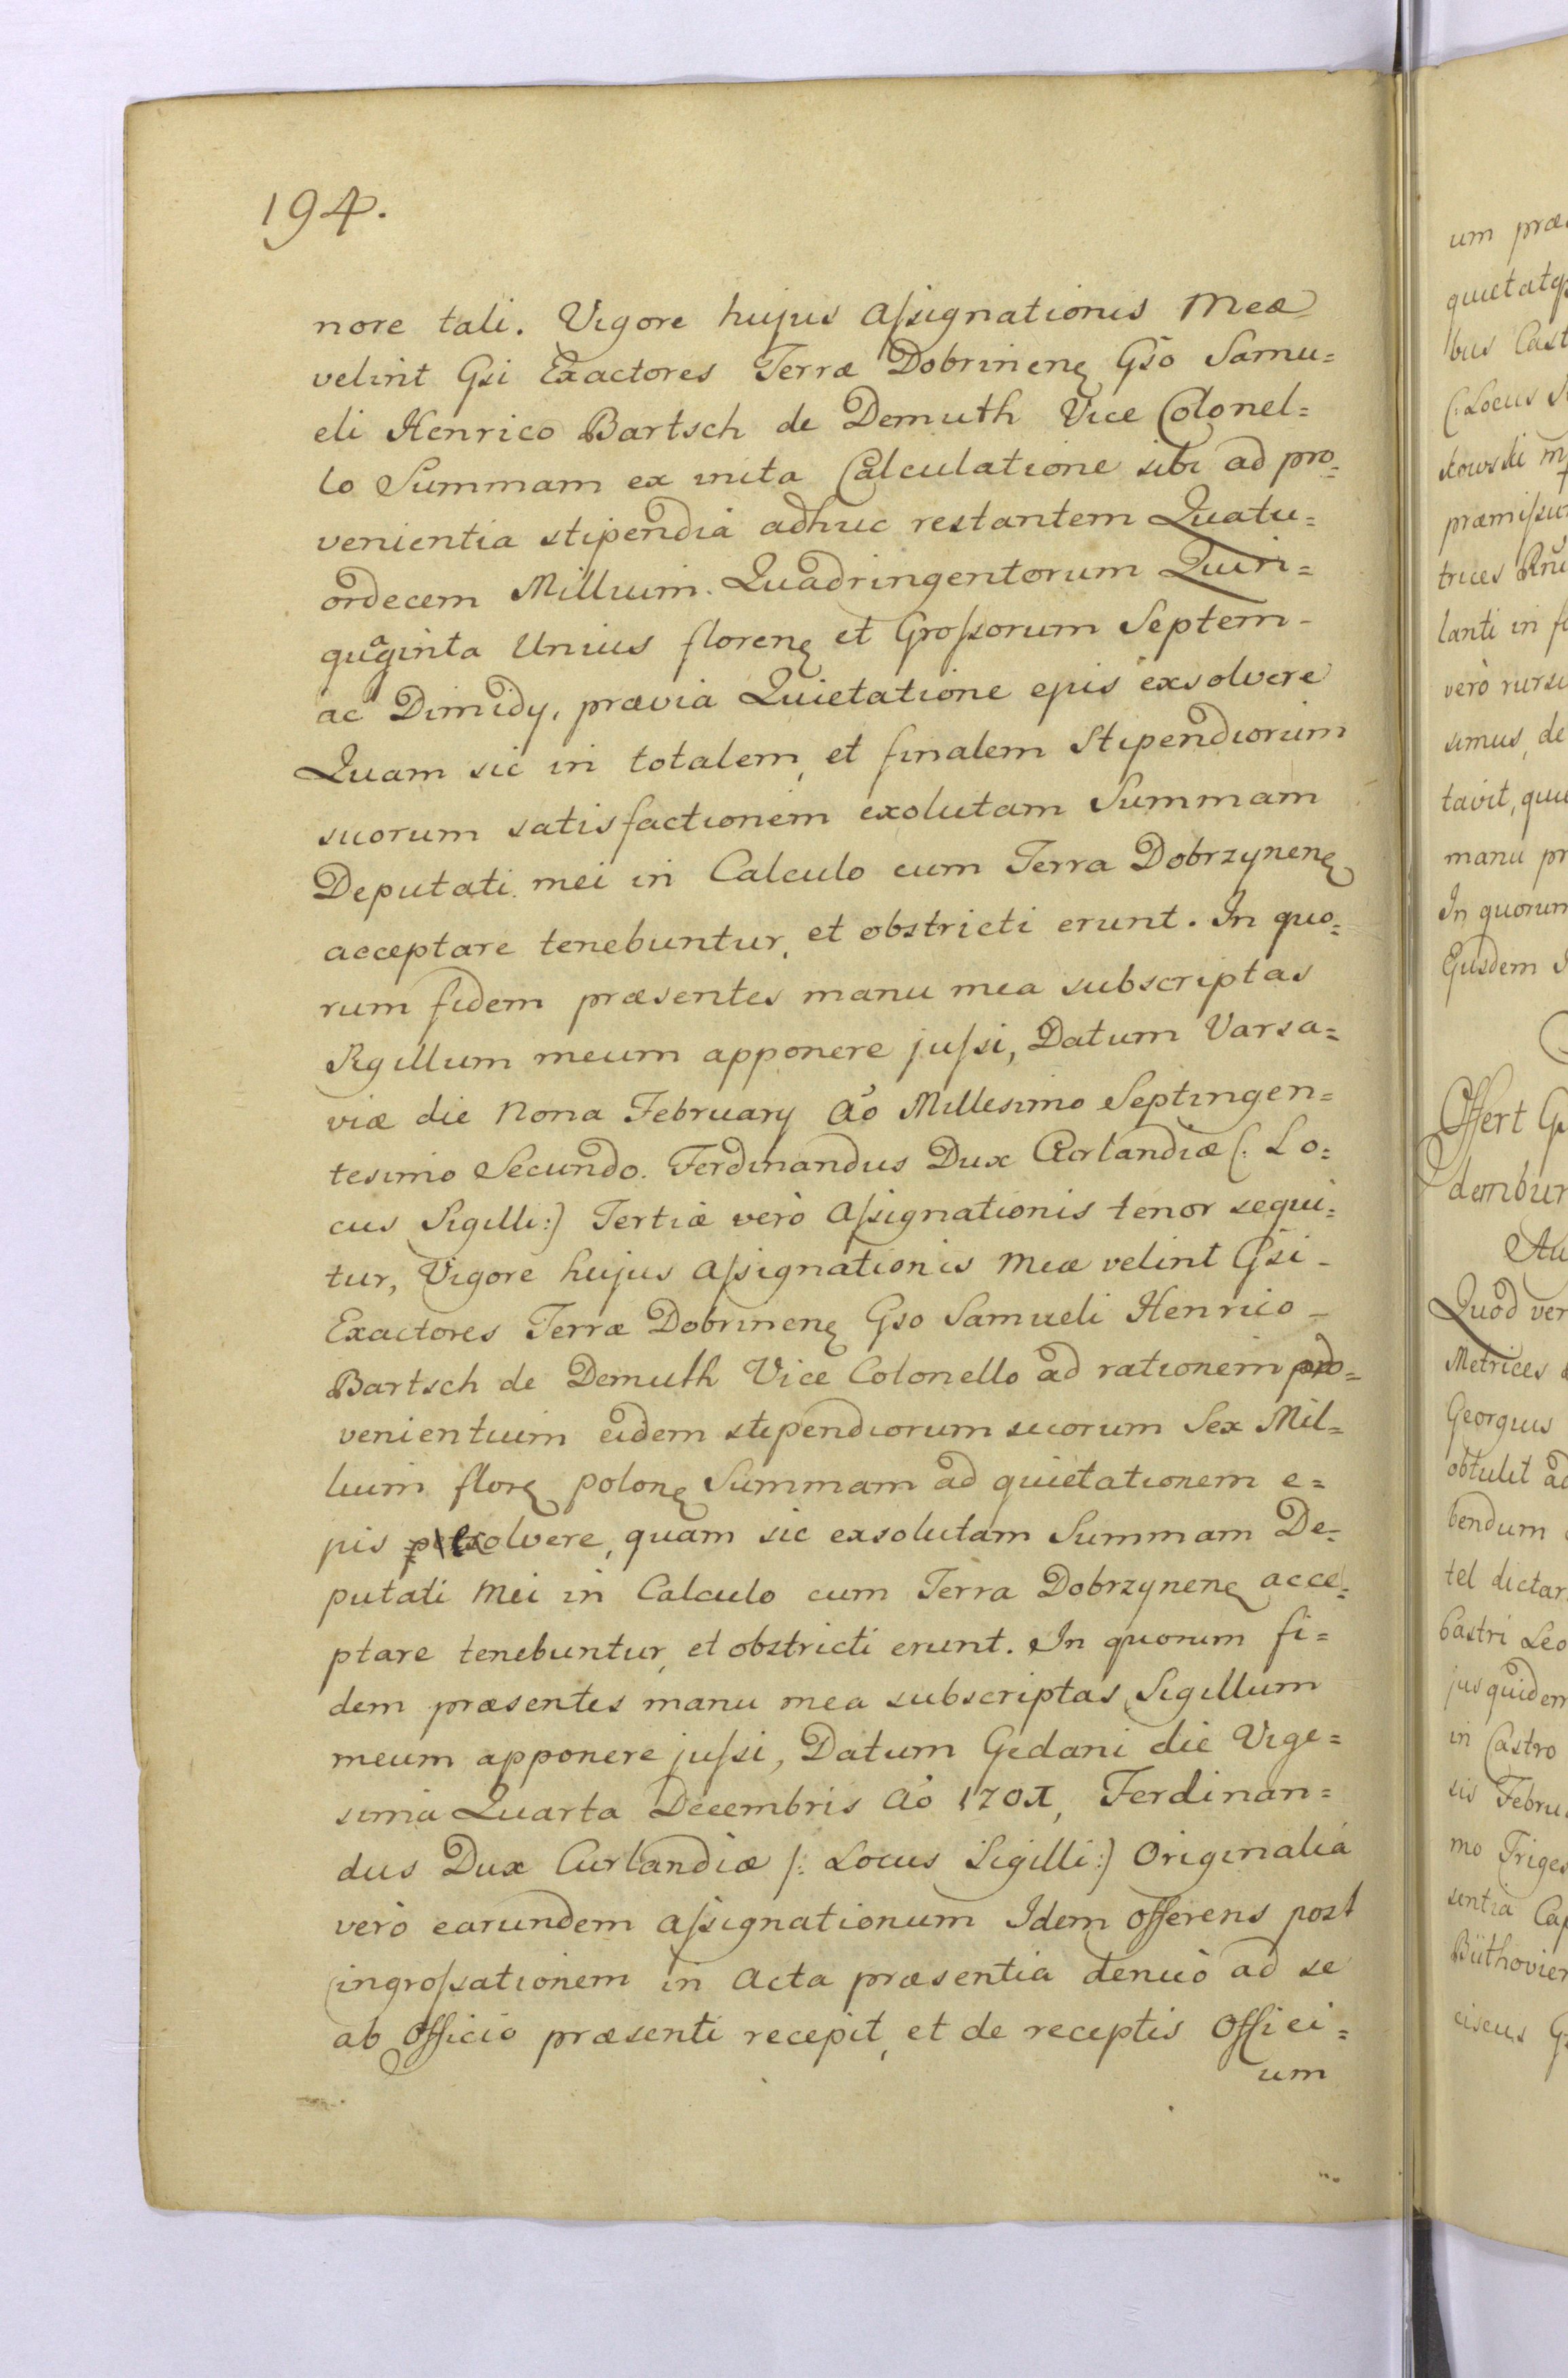 194.
nore tali. Vigore hujus Assignationis Meæ
velint Gsi Exactores Terræ Dobrinenę Gso Samu=
eli Henrico Bartsch de Demuth Vice Colonel=
lo Summam ex inita Calculatione sibi ad pro=
venientia stipendia adhuc restantem Quatu=
ordecem Millium. Quadringentorum Quin=
quaginta Unius florenę et Grossorum Septem-
ac Dimidy, prævia Quietatione ejus exsolvere
Quam sic in totalem, et finalem Stipendiorum
suorum satisfactionem exolutam Summam
Deputati mei in Calculo cum Terra Dobrzynenę
acceptare tenebuntur, et obstricti erunt. In quo=
rum fidem præsentes manu mea subscriptas
Sigillum meum apponere jussi, Datum Varsa=
viæ die Nona February Ao Millesimo Septingen=
tesimo Secundo. Ferdinandus Dux Curlandiæ (: Lo=
cus Sigilli:) Tertiæ verò Assignationis tenor sequi=
tur, Vigore hujus Assignationis Meæ velint Gsi-
Exactores Terræ Dobrinenę Gso Samueli Henrico-
Bartsch de Demuth Vice Colonello ad rationem pro=
venientium eidem stipendiorum suorum Sex Mil=
lium florę polonę Summam ad quietationem e=
jus exsolvere, quam sic exsolutam Summam De=
putati Mei in Calculo cum Terra Dobrzynenę acce=
ptare tenebuntur, et obstricti erunt. In quorum fi=
dem præsentes manu mea subscriptas Sigillum
meum apponere jussi, Datum Gedani die Vige=
sima Quarta Decembris Ao 1701, Ferdinan=
dus Dux Curlandiæ (: Locus Sigilli:) Originalia
verò earundem Assignationum Idem Offerens post
ingrossationem in Acta præsentia denuò ad se
ab Officio præsenti recepit, et de receptis Offici=
um
um præ
quietatq
bus Cast
(: Locus
skowski
præmissu
trices
lanti in
verò rursu
simus, de
tavit, qui
manu pr
In quorum
Ejusdem
Offert G
dembur
Quod ver
Metrices
Georgius
obtulit ad
bendum
tel dictar
Castri Leo
jus quidem
in Castro
sis Febru
mo Triges
sentia Cap
Büthovien
ciscus